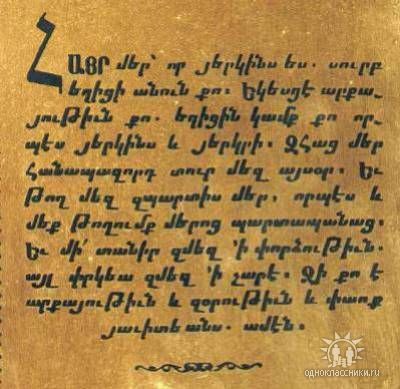 ՀԱՅՐ մեր՝ որ յերկինս ես. սուրբ
եղիցի անուն քո. Եկեսցէ արքա-
յութիւն քո. եղիցին կամք քո որ-
պէս յերկինս և յերկրի. ԶՀաց մեր
հանապազորդ տուր մեզ այսօր. Եւ
թող մեզ զպարտիս մեր, որպէս և
մեք թողումք մերոց պարտապանաց.
Եւ մի՛ տանիր զմեզ ՚ի փորձութիւն.
այլ փրկեա զմեզ ՚ի չարէ. Զի քո է
արքայութիւն և զօրութիւն և փառք
յաւիտեանս. ամէն.
одноклассники.ru